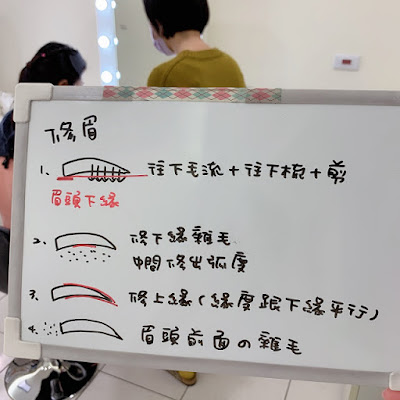 修眉
1. 往下毛流+往下梳+剪
眉頭下緣
2. 修下緣雜毛
中間修出弧度
3. 修上緣(緣度跟下緣平行)
4. 眉頭前面の雜毛